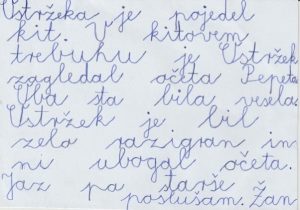 Ostržeka je pojedel
kit. V kitovem
trebuhu je Ostržek
zagledal očita Pepeta
Oba sta bila vesela
Ostržek je bil
zelo razigran in
ni ubogal očeta.
Jaz pa starše
poslušam. Žan